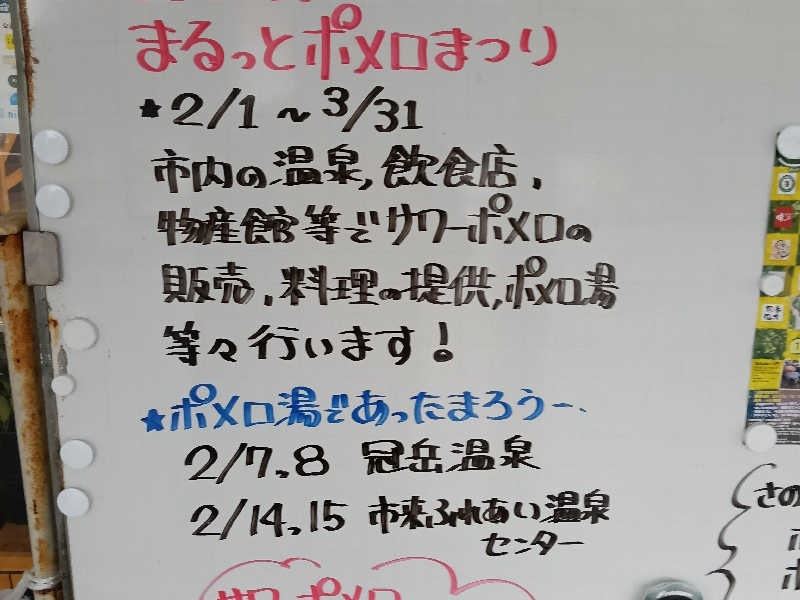 まるっとポメロまつり
★2/1～3/31
市内の温泉,飲食店,
物産館等でサワーポメロの
販売,料理の提供,ポメロ湯
等々行います!
★ポメロ湯であったまろうー..
2/7,8 冠岳温泉
2/14,15 市来ふれあい温泉
センター
サワーポメロ
さの